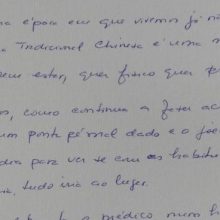 época em que vivemos já n
Tradicional Chinesa é uma m
estar, quer físico quer p
, como continua a fazer ac
um ponto pé mal dado e o joe
para ver se com as habitu
, tudo iria ao lugar.
o médico num h